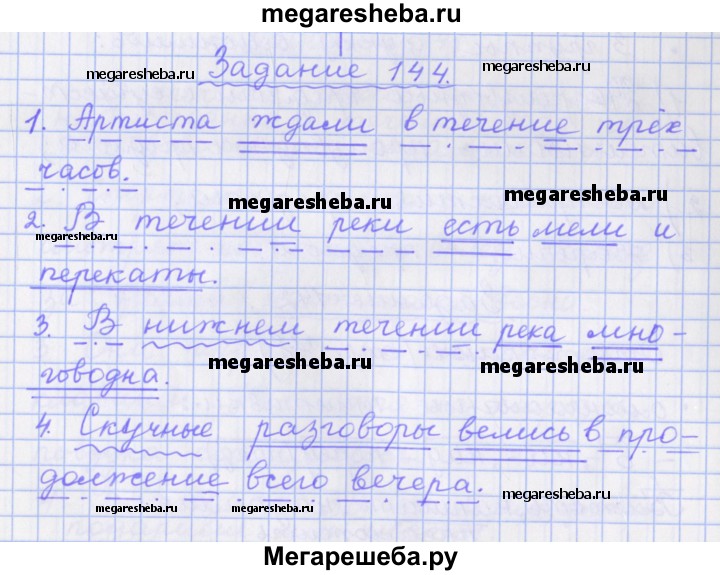 megaresheba.ru
megaresheba.ru Задание 144. megaresheba.ru
1. Артиста ждали в течение трёх
часов.
megaresheba.ru megaresheba.ru
2. В течении реки есть мели и
megaresheba.ru
перекаты.
3. В нижнем течении река мно-
megaresheba.ru megaresheba.ru
говодна.
4. Скучные разговоры велись в про-
должение всего вечера.
megaresheba.ru megaresheba.ru megaresheba.ru
Мегарешеба.ру